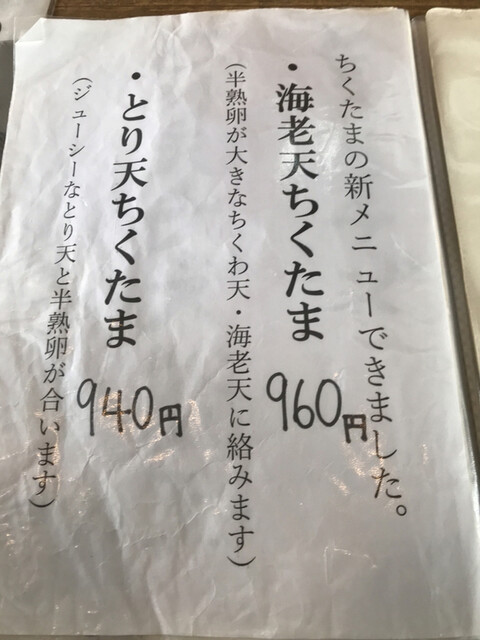 ちくたまの新メニューできました。
・海老天ちくたま
960円
(半熟卵が大きなちくわ天・海老天に絡みます)
・とり天ちくたま
940円
(ジューシーなとり天と半熟卵が合います)